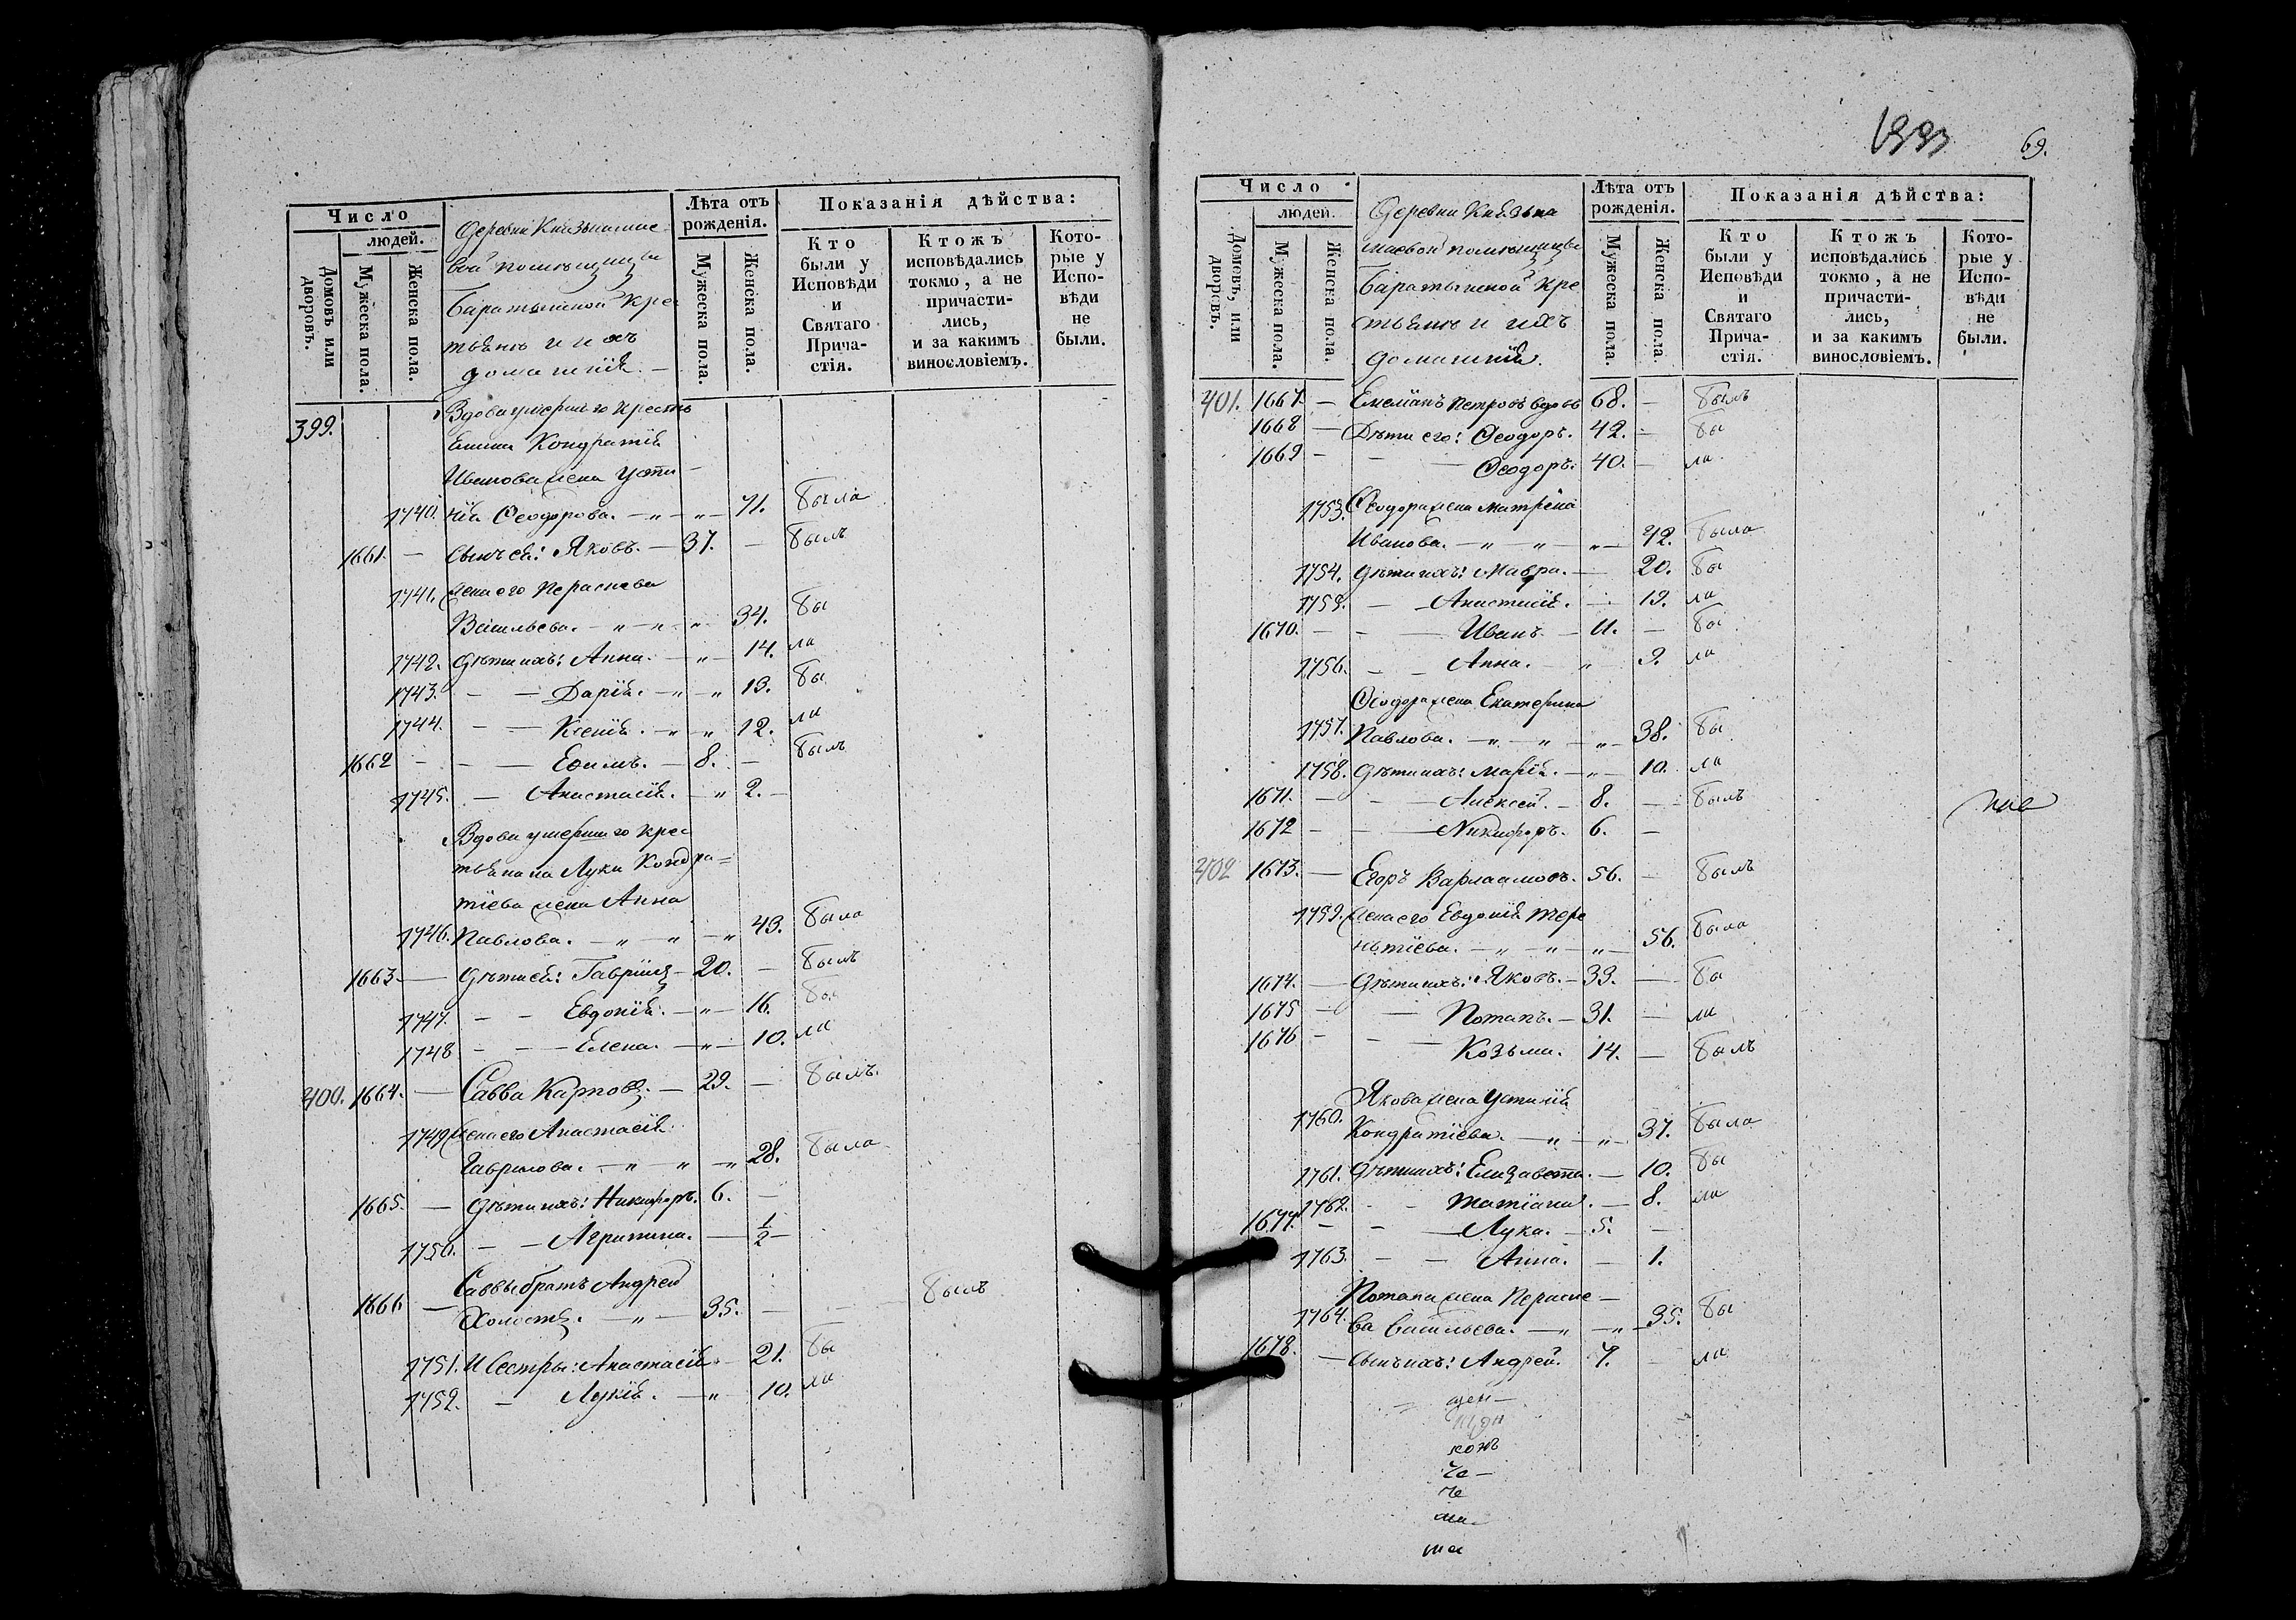 Число
людей.
Домовъ или дворовъ.
Мужеска пола.
Женска пола.
Деревни Князьматае-
вой помѣщицы
Баратынской Кре
стьянъ и ихъ
домашнія. —
Лѣта отъ рожденія.
Мужеска пола.
Женска пола.
Показанія дѣйства:
Кто были у Исповѣди и Святаго Прича- стія.
Ктожъ исповѣдались токмо, а не причасти- лись, и за какимъ винословіемъ.
Кото- рые у Испо- вѣди не были.
399. Вдова умершаго кресть
Кондратія
Иванова жена Усти-
1740. нія Ѳеодорова. — 71. Была
1661. — Сынъ ея: Яковъ. — 37. — былъ
1741. Жена его Параскева
Васильева. — 34. бы
1742. Дѣти ихъ: Анна. — 14. ла
1743. — — Дарія. — 13. бы
1744. — — Ксенія. — 12. ла
1662 — — Еѳимъ. — 8. — былъ
1745. — Анастасія. — 2. —
Вдова умершаго крес
тьянина Луки Кондра=
тіева жена Анна
1746. Павлова. — 43. была
1663 — Дѣти ея: Гавріилъ — 20. — былъ
1747. — — Евдокія. — 16. бы
1748 — — Елена. — 10. ла
400. 1664. — Савва Карповъ. — 29. — былъ.
1749 Жена его Анастасія
Гаврилова. — 28. была
1665. — Дѣти ихъ: Никифоръ. 6. —
1750. — — Агрипина. — 1/2 —
Саввы братъ Андрей
1666 — Холостъ. — 35. — былъ
1751. И Сестры: Анастасія — 21. бы
1752. — Лукія. — 10. ла
69.
Число
людей.
Домовъ, или дворовъ.
Мужеска пола.
Женска пола.
Деревни Князьма
таевой помѣщицы
Баратынской Кре
стьянъ и ихъ
домашнія.
Лѣта отъ рожденія.
Мужеска пола.
Женска пола.
Показанія дѣйства:
Кто были у Исповѣди и Святаго Прича- стія.
Ктожъ исповѣдались токмо, а не причасти- лись, и за какимъ винословіемъ.
Кото- рые у Испо- вѣди не были.
401. 1667. — Емеліанъ Петровъ вдовъ 68. — былъ
1668 — Дѣти его: Ѳеодоръ. 42. — бы
1669 — — Ѳеодоръ. 40. — ла
1753. Ѳеодора жена Матрена
Иванова. — 42. была
1754. Дѣти ихъ: Мавра. — 20. бы
1755. — Анастасія. — 19. ла
1670. — — Иванъ. — 11. — бы
1756. — Анна. — 9. ла
Ѳеодора жена Екатерина
1757. Павлова. — 38. бы
1758. Дѣти ихъ: Марія. — 10. ла
1671. — — Алексей. — 8. — былъ
1672 — — Никифоръ. 6. —
402 1673. — Егоръ Варлаамовъ. 56. — былъ
1759. Жена его Евдокія Тере
нтіева. — 56. была
1674. — Дѣти ихъ: Яковъ. — 39. — бы
1675 — — Потапъ. — 31. — ла
1676 — — Козьма. 14. — былъ
Якова жена Устинія
1760. Кондратіева. — 37. была
1761. Дѣти ихъ: Елизавета. — 10. бы
1762. — — Татіана. — 8. ла
1677. — — Лука. — 5. —
1763. — — Анна. — 1.
Потапа жена Параске —
1764. ва Васильева. — 35. бы
1678. — Сынъ ихъ: Андрей. 7. — ла